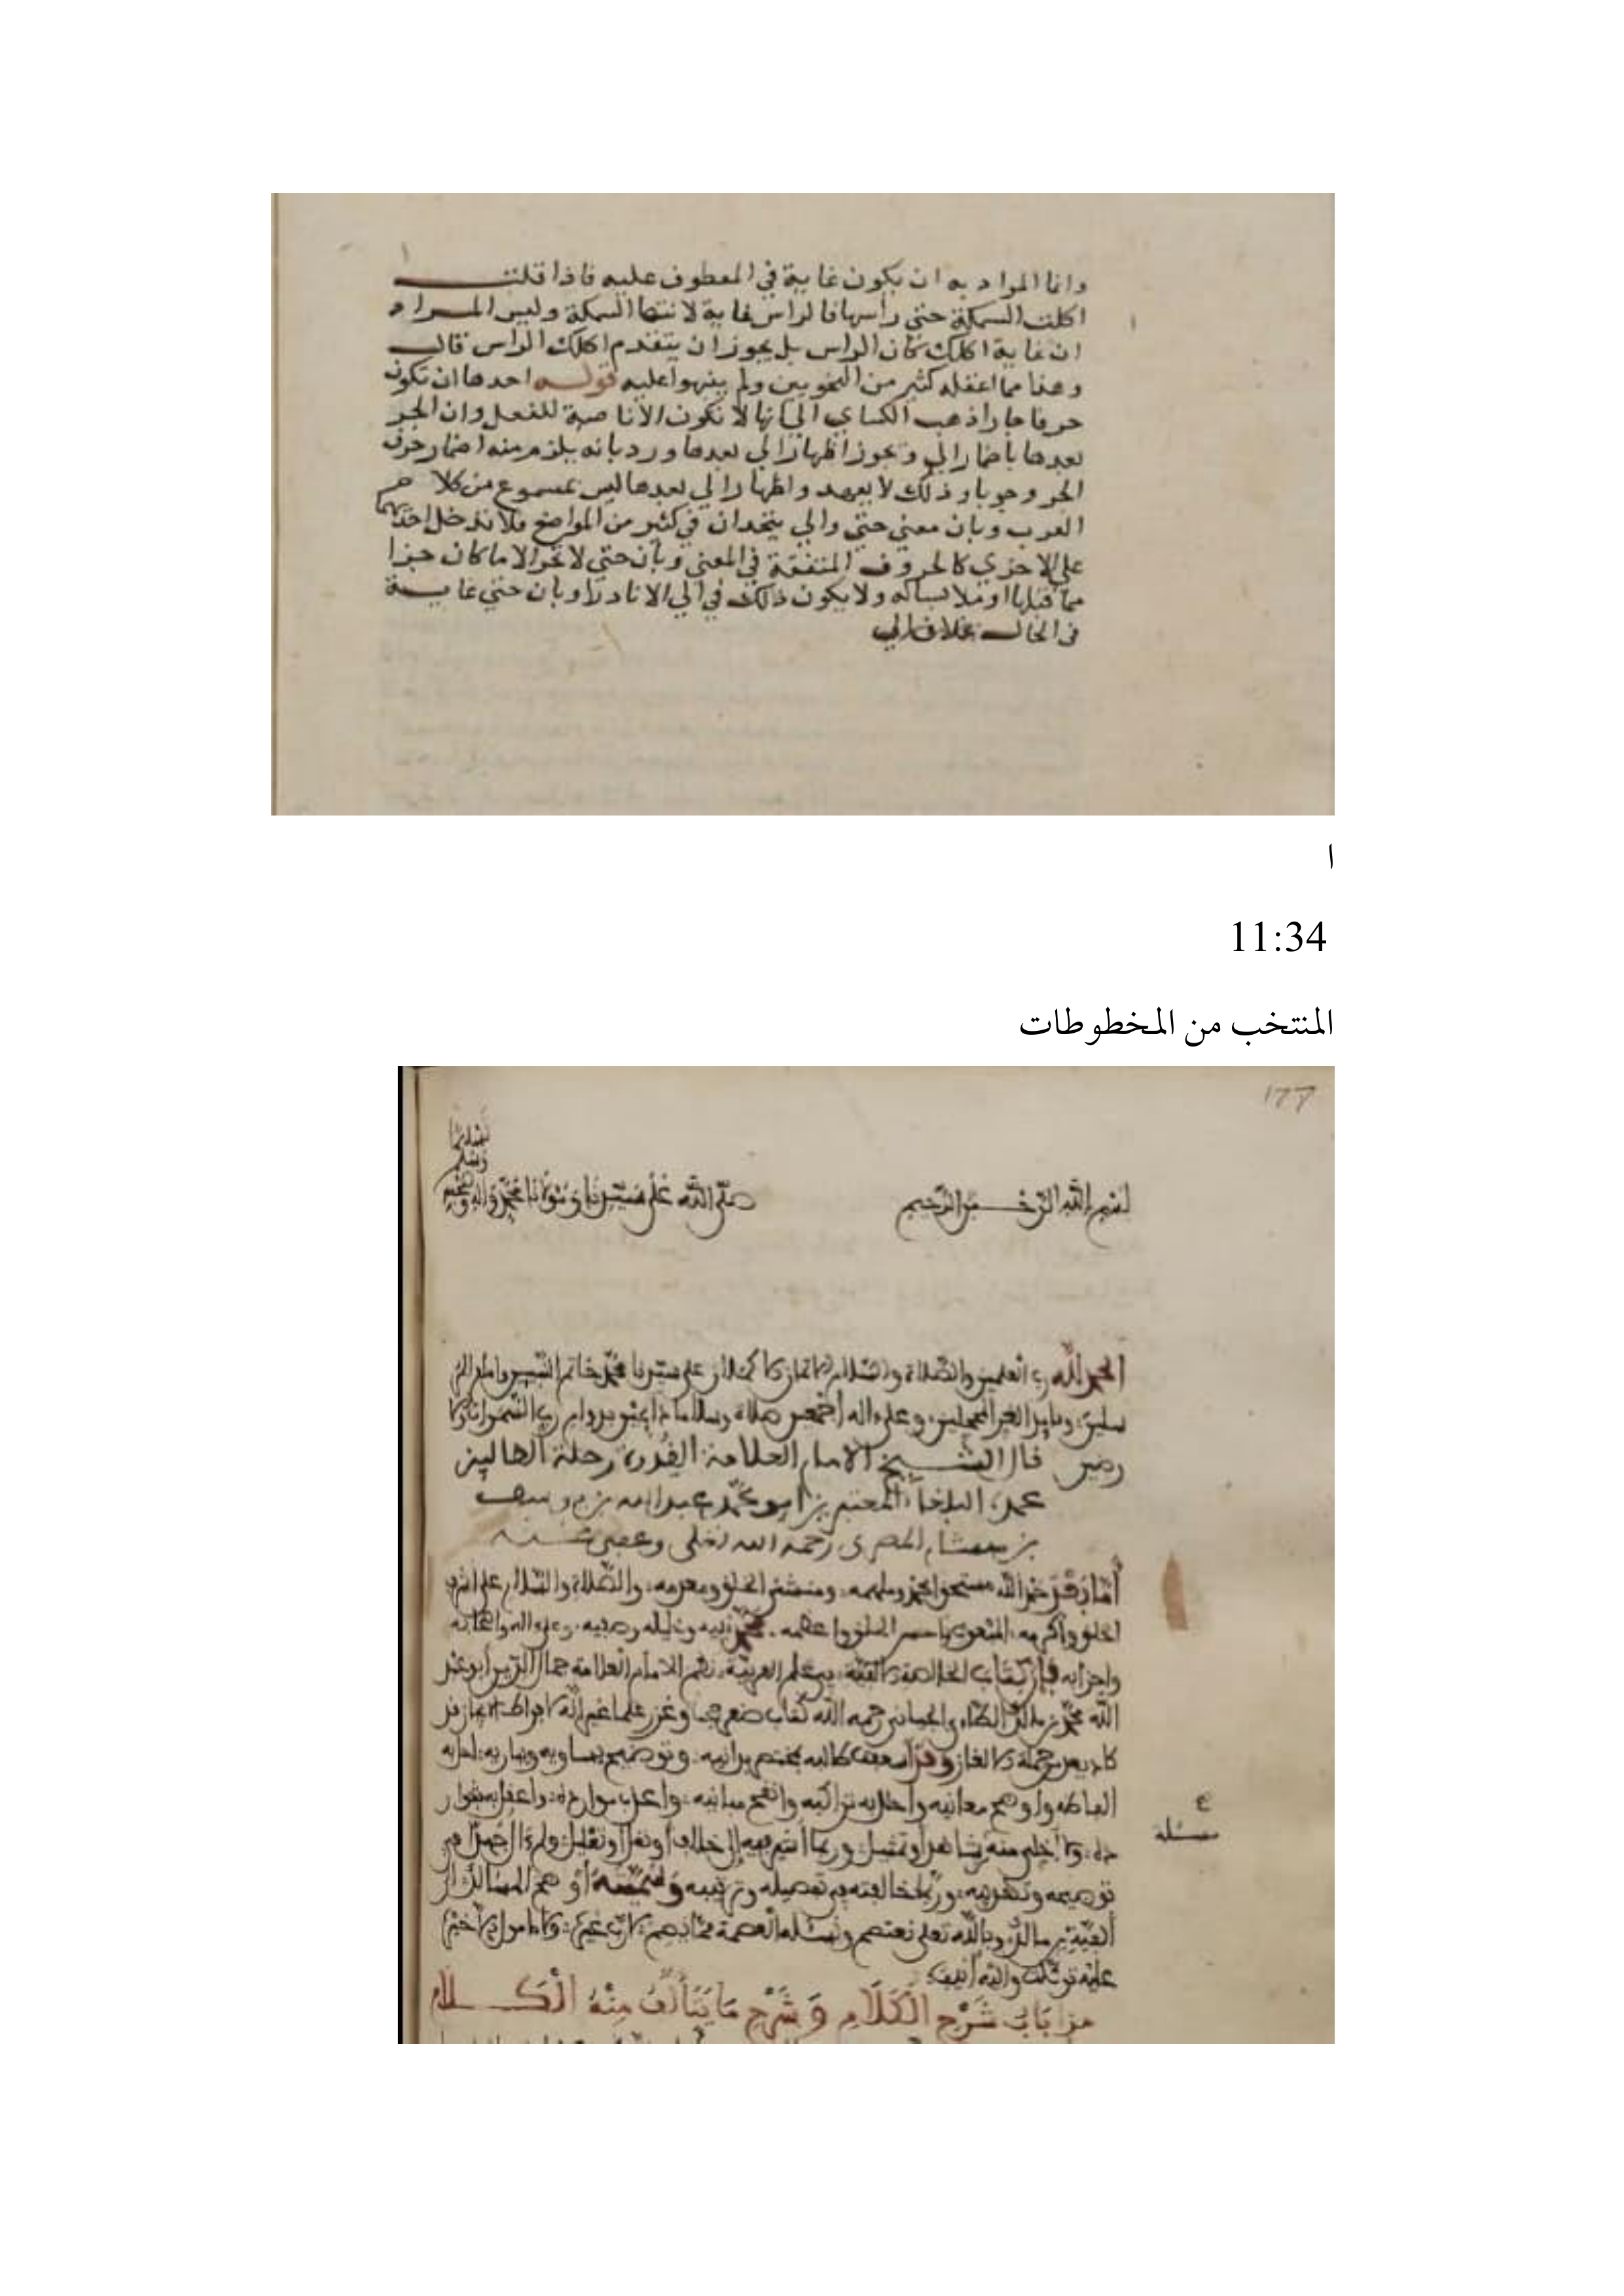 وانما المراد به ان يكون غاية في المعطوف عليه فاذا قلت
اكلت السمكة حتى راسها فالراس غاية لانتها السمكة وليس المراد
ان غاية اكلك كان الراس بل يجوز ان يتقدم اكلك الراس قال
وهذا مما اغفله كثير من النحويين ولم ينبهوا عليه قوله احدها ان تكون
حرفا جارا ذهب الكساي الي انها لا تكون الا ناصبة للفعل وان الجر
بعدها باضمار الي وتجوز اظهار الي بعدها ورد بانه يلزم منه اضمار حرف
الجر وجوبا وذلك لا يعهد واظهار الي بعدها ليس بمسموع من كلام
العرب وبان معني حتي والي يتحدان في كثير من المواضع فلا تدخل احديهما
علي الاخري كالحروف المتفقة في المعني وبان حتي لا تجر الا ما كان جزا
مما قبلها او ملابسا له ولا يكون ذلك في الي الا نادرا وبان حتي غاية
في الحال بخلاف الي
ا
11:34
المنتخب من المخطوطات
١٦٦
تسليما
وسلم
بسم الله الرحمن الرحيم صلى الله على سيدنا ومولانا محمد وآله وصحبه
الحمد لله رب العلمين والصلاة والسلام الاتمان الاكملان على سيدنا محمد خاتم النبيين وامام المر
سلين وقايد الغر المحجلين وعلى اله أجمعين صلاة وسلاما دايمين بدوام رب السموات والا
رضين قال الشيخ الامام العلامة القدوة رحلة الطالبين
عمدة البلغاء المعتبرين أبو محمد عبد الله بن يوسف
بن هشام المصري رحمه الله تعلى وعفى عنه
أما بعد حمد الله مستحق الحمد وملهمه ومنشئ الخلق ومعدمه والصلاة والسلام على اشرف
الخلق وأكرمه المنعوت باحسن الخلق واعظمه محمد نبيه وخليله وصفيه وعلى اله واصحابه
واحزابه فإن كتاب الخلاصة الالفية في علم العربية نظم الامام العلامة جمال الدين أبو عبد
الله محمد بن مالك الطاءي الجياني رحمه الله كتاب صغر حجما وغزر علما غير أنه لافراط الايجاز قد
كاد يعد من جملة الالغاز وقد أسعفت طالبيه بمختصر يدانيه وتوضيح يسايره ويباريه احل به
الفاظه واوضح معانيه وأحلل به تراكيبه وانقح مبانيه واعذب موارده واعقل به شوار
ده ولا أخلي منه مسئلة من شاهد أو تمثيل وربما أشير فيه إلى خلاف أو نقد أو تعليل ولم ءال جهدا في
توضيحه وتهذيبه وربما خالفته في تفصيله وترتيبه وسميته أوضح المسالك إلى
ألفية ابن مالك وبالله تعلى نعتصم ونسئله العصمة مما يصم لا رب غيره ولا مامول الا خيره
عليه توكلت وإليه أنيب
هذا باب شرح الكلام وشرح ما يتألف منه الكلام
مسئلة